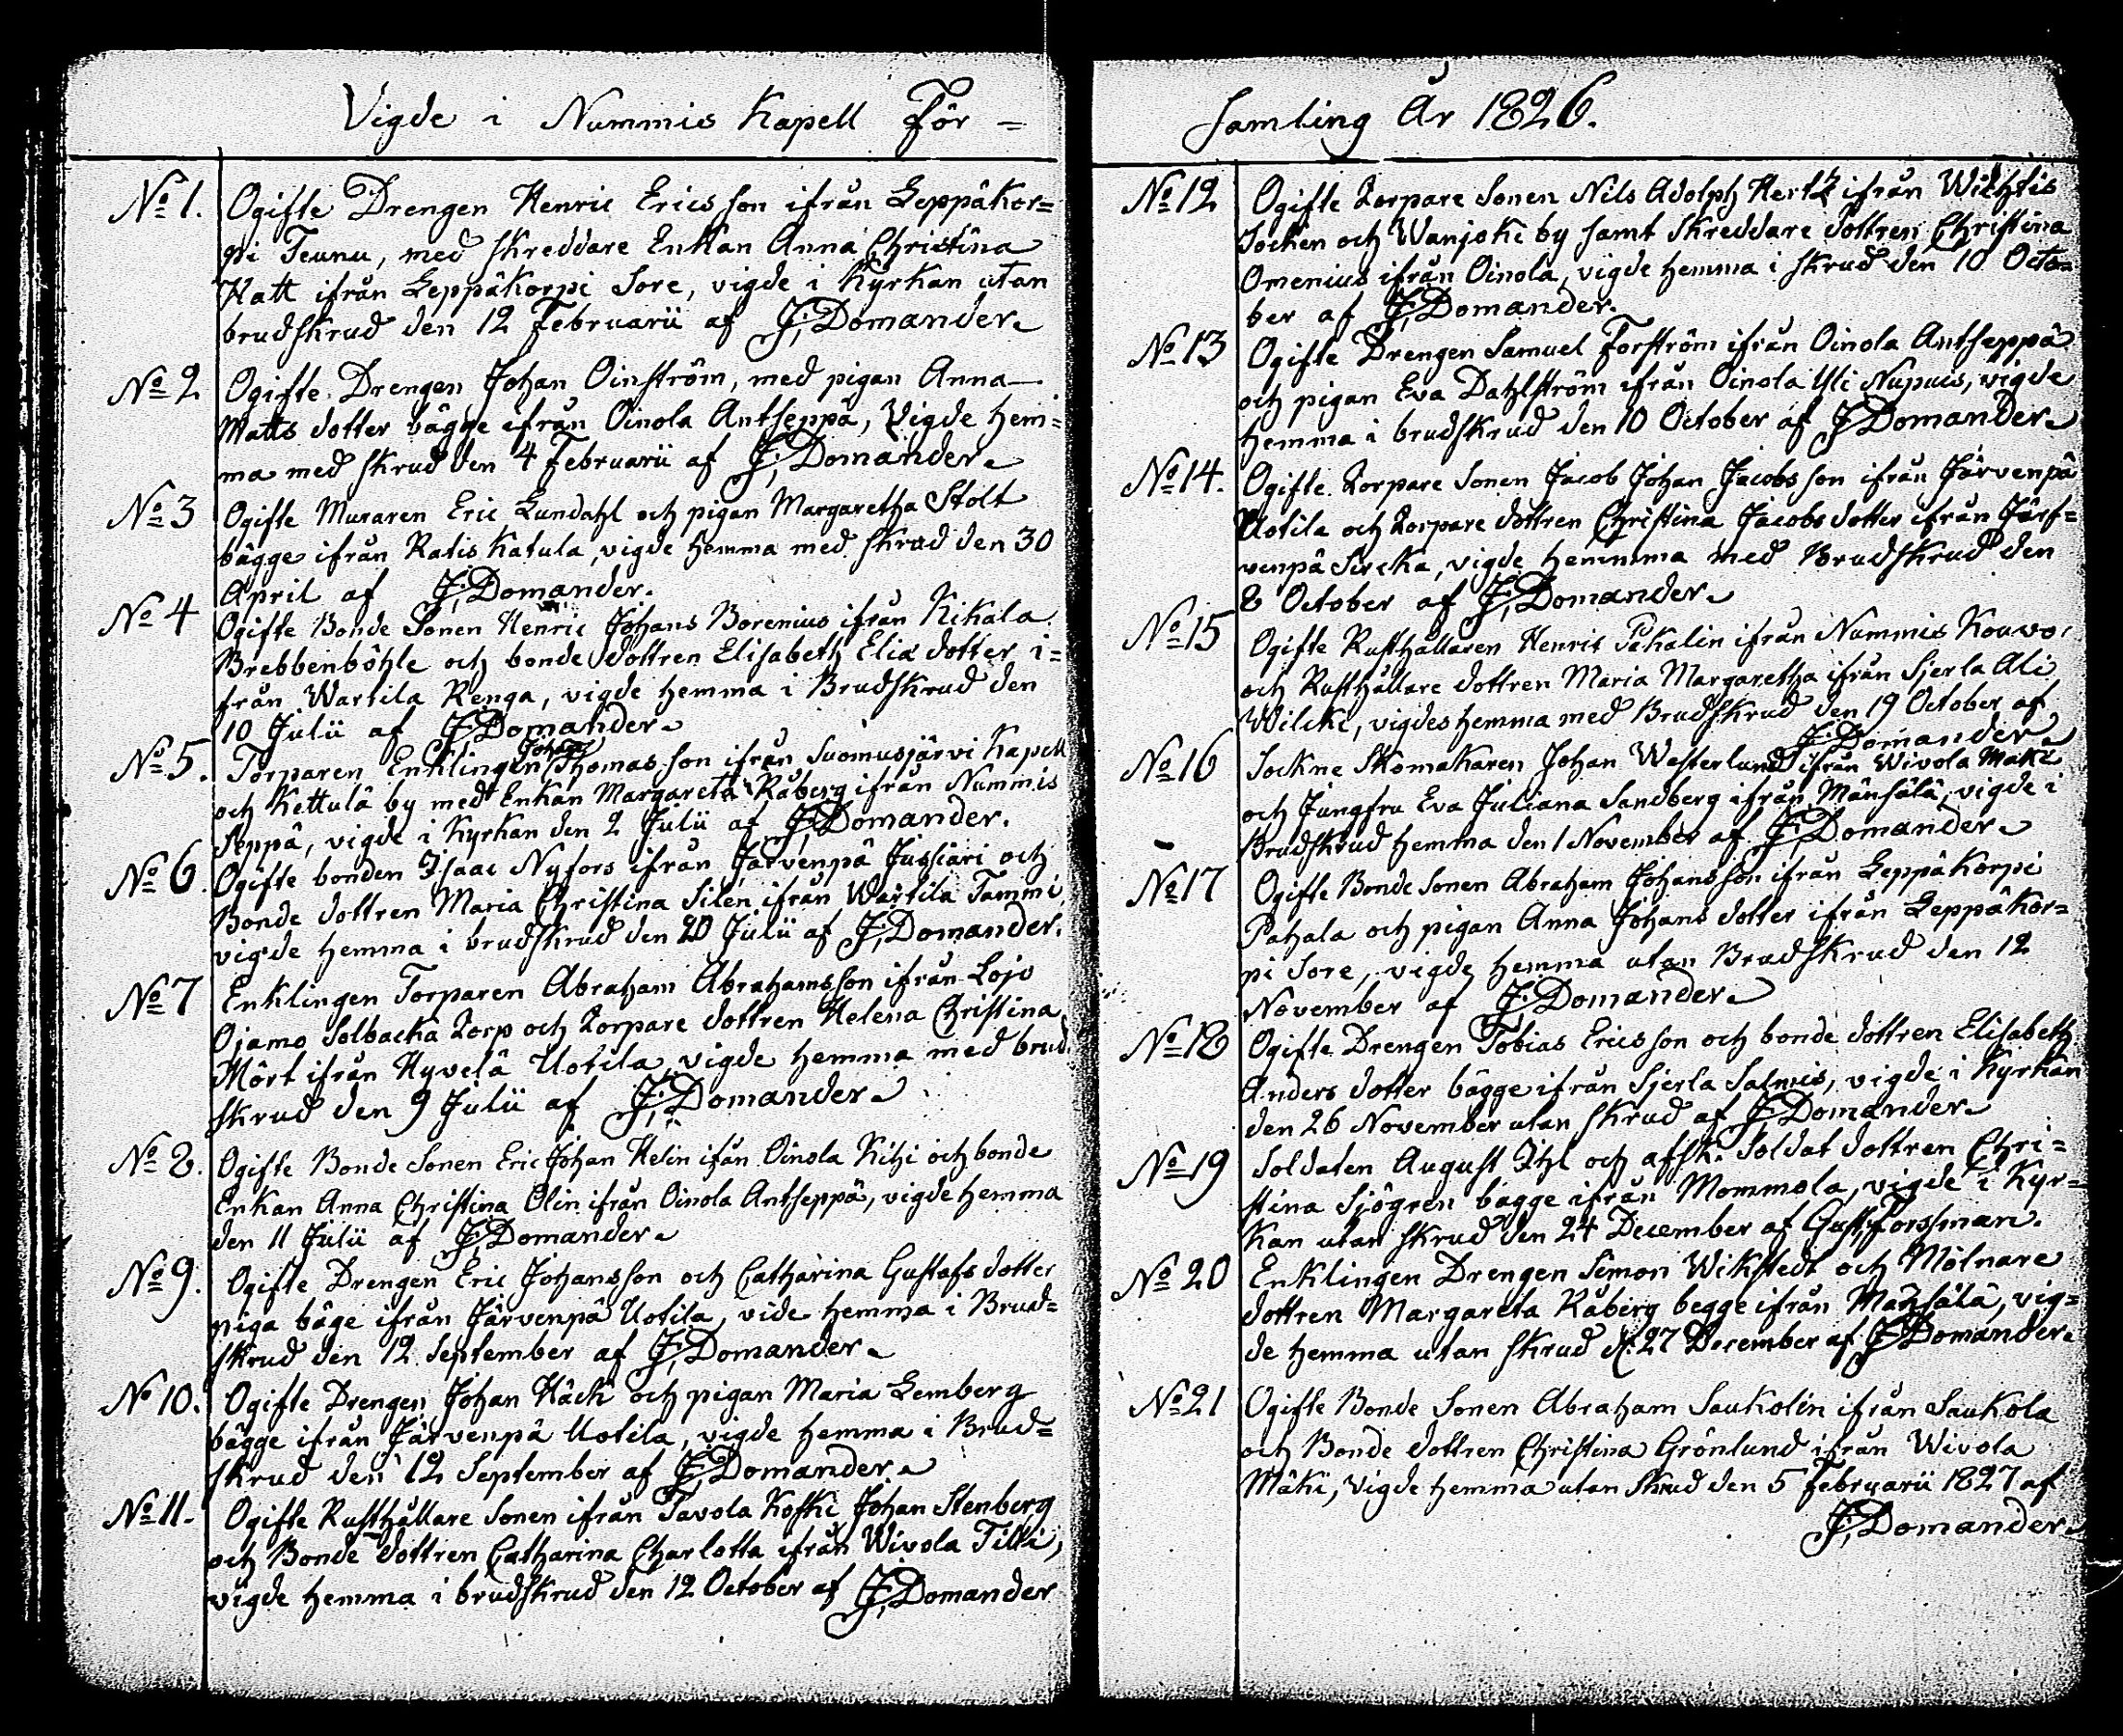 Vigde i Nummis Kapell För=
N:o 1. Ogifte Drengen Henric Ericsson ifrån Leppäkor=
pi Teunu, med skreddare Enkan Anna Christina
Hatt ifrån Leppäkorpi Sore, vigde i Kyrkan utan
brudskrud den 12 Februarii af J. Domander.
N:o 2 Ogifte Drengen Johan Oinström, med pigan Anna
Matts dotter bägge ifrån Oinola Antseppä, Vigde hem=
ma med skrud den 4 Februarii af J. Domander.
N:o 3 Ogifte Muraren Eric Lundahl och pigan Margaretha Stolt
bägge ifrån Ratis Katula, vigde hemma med skrud den 30
April af J. Domander.
N:o 4 Ogifte Bonde Sonen Henric Johans Borenius ifrån Kikala
Brebbenböhle och bonde dottren Elisabeth Eliæ dotter i=
från Wartila Renga, vigde hemma i Brudskrud den
10 Julii af J. Domander.
N:o 5. Torparen Enklingen Johan Thomas son ifrån Suomusjärvi Kapell
och Kettulä by med Enkan Margareta Råberg ifrån Nummis
Seppä, vigde i Kyrkan den 2 Julii af J. Domander.
N:o 6. Ogifte bonden Isaac Nyfors ifrån Järvenpä Jussiari och
Bonde dottren Maria Christina Silén ifrån Wartila Tammi,
vigde hemma i brudskrud den 20 Julii af J. Domander.
N:o 7 Enklingen Torparen Abraham Abrahamsson ifrån Lojo
Ojamo Solbacka Torp och Torpare dottren Helena Christina
Mört ifrån Hyvelä Uotila, vigde hemma med brud
skrud den 9 Julii af J. Domander.
N:o 8. Ogifte Bonde Sonen Eric Johan Helin ifån Oinola Kihi och bonde
Enkan Anna Christina Olin ifrån Oinola Antseppä, vigde hemma
den 11 Julii af J. Domander.
N:o 9. Ogifte Drengen Eric Johansson och Catharina Gustafs dotter
piga bäge ifrån Järvenpä Uotila, vide hemma i Brud=
skrud den 12 September af J. Domander.
N:o 10. Ogifte Drengen Johan Häck och pigan Maria Lemberg
bägge ifrån Järvenpä Uotila, vigde hemma i Brud=
skrud den 12 September af J. Domander.
N:o 11. Ogifte Rusthållare Sonen ifrån Tavola Koski Johan Stenberg
och Bonde dottren Catharina Charlotta ifrån Wivola Tilki,
vigde hemma i brudskrud den 12 October af J. Domander
samling År 1826.
N:o 12 Ogifte Torpare Sonen Nils Adolph Hertz ifrån Wichtis
Socken och Wanjoki by samt Skreddare dottren Christina
Omenius ifrån Oinola, vigde hemma i skrud den 10 Octo=
ber af J. Domander.
N:o 13 Ogifte Drengen Samuel Forström ifrån Oinola Antseppä
och pigan Eva Dahlström ifrån Oinola Yli Nupuis, vigde
hemma i brudskrud den 10 October af J. Domander.
N:o 14. Ogifte Torpare Sonen Jacob Johan Jacobs son ifrån Järvenpä
Uotila och Torpare dottren Christina Jacobs dotter ifrån Järf=
venpä Sircka, vigde hemmma med Brudskrud den
8 October af J. Domander.
N:o 15 Ogifte Rusthållaren Henric Pakalin ifrån Nummis Kouvo
och Rusthållare dottren Maria Margaretha ifrån Sjerla Ali
Wilcki, vigdes hemma med Brudskrud den 19 October af
J. Domander.
N:o 16 Sockne Skomakaren Johan Westerlund ifrån Wivola Mäki
och Jungfru Eva Juliana Sandberg ifrån Mänsälä, vigde i
Brudskrud hemma den 1 November af J. Domander.
N:o 17 Ogifte Bonde Sonen Abraham Johansson ifrån Leppäkorpi
Pahala och pigan Anna Johans dotter ifrån Leppäkor=
pi Sore, vigde hemma utan Brudskrud den 12
November af J. Domander.
N:o 18 Ogifte Drengen Tobias Erics son och bonde dottren Elisabeth
Anders dotter bägge ifrån Sjerla Salmis, vigde i Kyrkan
den 26 November utan skrud af J. Domander.
N:o 19 Soldaten August Ihl och afsk. Soldat dottren Chri=
stina Sjögren bägge ifrån Mommola, vigde i Kyr=
kan utan skrud den 24 December af Gust. Forssman.
N:o 20 Enklingen Drengen Simon Wikstedt och Mölnare
dottren Margareta Råberg begge ifrån Mänsälä, vig=
de hemma utan skrud d. 27 December af J. Domander.
N:o 21 Ogifte Bonde Sonen Abraham Saukolin ifrån Saukola
och Bonde dottren Christina Grönlund ifrån Wivola
Mäki, Vigde hemma utan skrud den 5 Februarii 1827 af
J. Domander.